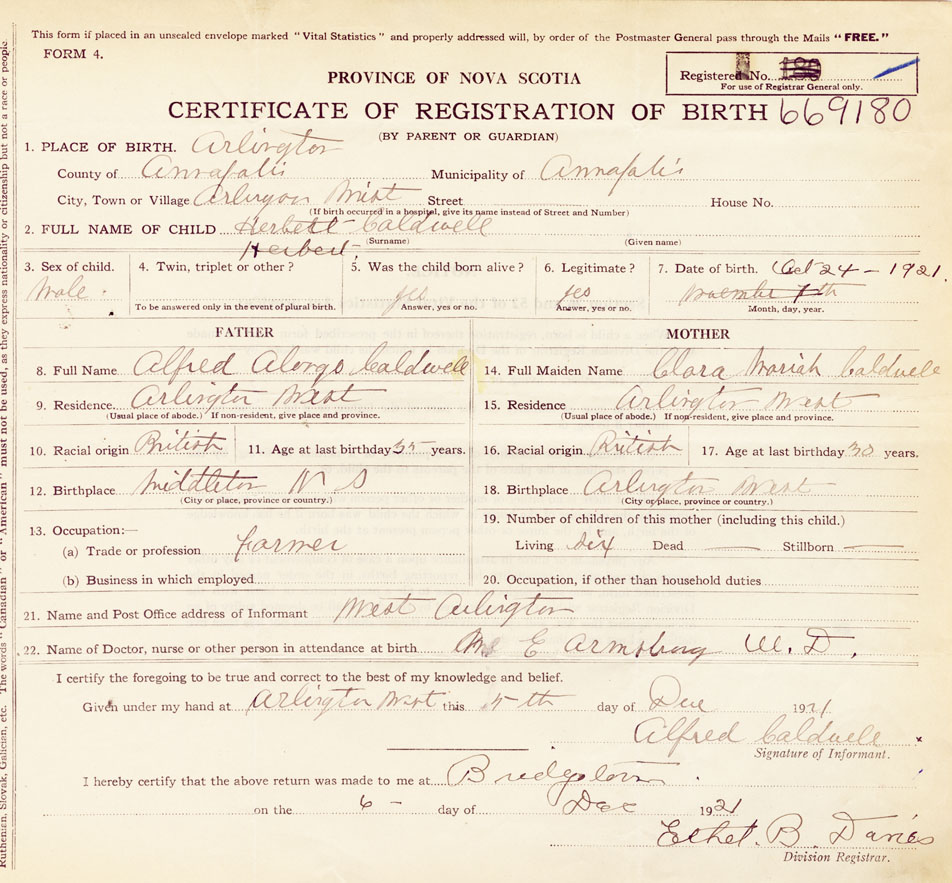 This form if placed in an unsealed envelope marked "Vital Statistics" and properly addressed will, by order of the Postmaster General pass through the Mails "FREE."
FORM 4.
PROVINCE OF NOVA SCOTIA
Registered No.
For use of Registrar General only.
CERTIFICATE OF REGISTRATION OF BIRTH 669180
(BY PARENT OR GUARDIAN)
1. PLACE OF BIRTH. Arlington
County of Annapolis Municipality of Annapolis
City, Town or Village Arlington West Street House No.
(If birth occurred in a hospital, give its name instead of Street and Number)
2. FULL NAME OF CHILD Herbett Caldwell
Herbert (Surname) (Given name)
3. Sex of child. 4. Twin, triplet or other? 5. Was the child born alive? 6. Legitimate? 7. Date of birth. Oct 24 - 1921.
Male. yes yes November 7th
To be answered only in the event of plural birth. Answer, yes or no. Answer, yes or no. Month, day, year.
FATHER MOTHER
8. Full Name Alfred Alonzo Caldwell 14. Full Maiden Name Clara Moriah Caldwell
9. Residence. Arlington West 15. Residence Arlington West
(Usual place of abode.) If non-resident, give place and province. (Usual place of abode.) If non-resident, give place and province.
10. Racial origin British 11. Age at last birthday 35 years. 16. Racial origin British 17. Age at last birthday 30 years.
12. Birthplace Middleton N S 18. Birthplace Arlington West
(City or place, province or country.) (City or place, province or country.)
13. Occupation:— 19. Number of children of this mother (including this child.)
(a) Trade or profession farmer Living six Dead — Stillborn —
(b) Business in which employed 20. Occupation, if other than household duties
21. Name and Post Office address of Informant West Arlington
22. Name of Doctor, nurse or other person in attendance at birth E Armstrong M.D.
I certify the foregoing to be true and correct to the best of my knowledge and belief.
Given under my hand at Arlington West this 5th day of Dec 1921
Alfred Caldwell
Signature of Informant.
I hereby certify that the above return was made to me at Bridgetown
on the 6 - day of Dec 1921
Ethel. B. Davies
Division Registrar.
Ruthenian, Slovak, Galician, etc. The words "Canadian" or "American" must not be used, as they express nationality or citizenship but not a race or people.